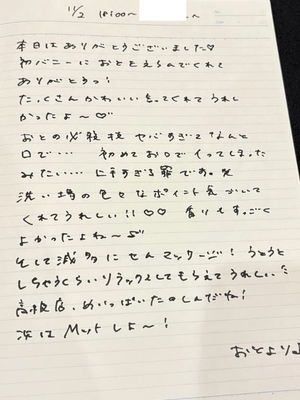 11/2 18:00〜 〜
本日はありがとうございました♡
初バニーにおとをえらんでくれて
ありがとうっ!
たっくさんかわいいってくれてうれし
かったよ〜♡
おとの必殺技ヤバすぎてなんと
口で… 初めてお口でイってしまった
みたい… 上手すぎる罪です。笑
洗い場の色々なポイント気づいて
くれてうれしい!!♡♡ すっごく
よかったよね〜
そして滅多にせんマッサージ! うとうと
しちゃうくらいリラックスしてもらえてうれしい
高級店、めいっぱいたのしんだね!
次はMットしよ〜!
おとより